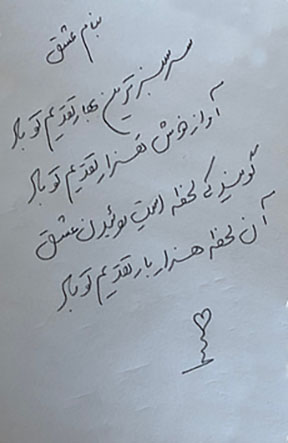 بنام عشق
سرسبزترین بهار تقدیم تو باد
آوای خوش هزار تقدیم تو باد
گویند که لحظه ایست روئیدن عشق
آن لحظه هزار بار تقدیم تو باد